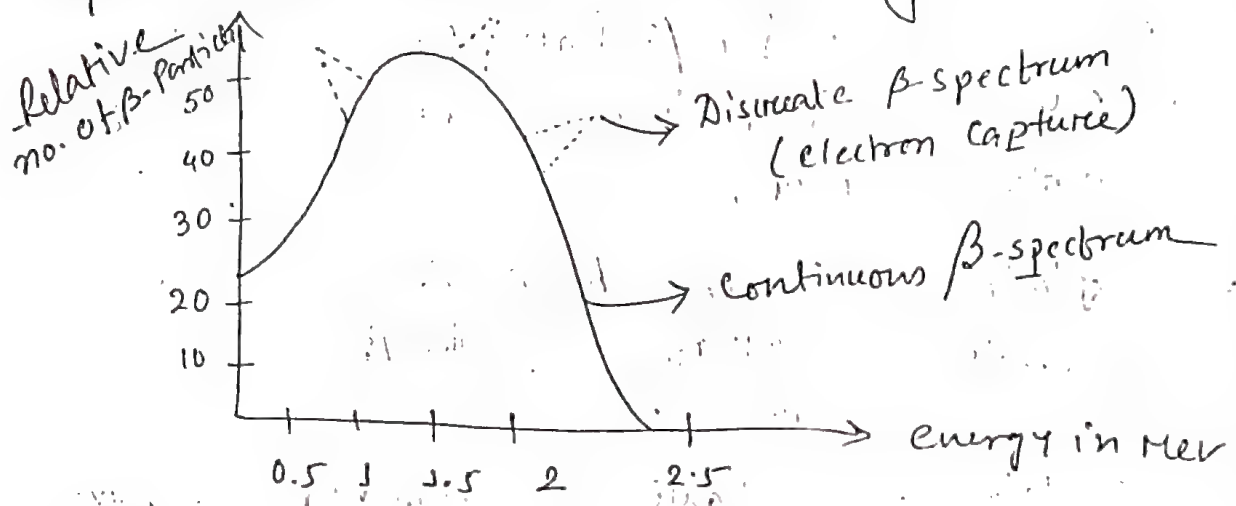 Relative
no. of β-Particle
50
40
30
20
10
Discreate β-spectrum
(electron capture)
continuous β-spectrum
0.5 1 1.5 2 2.5
energy in Mev